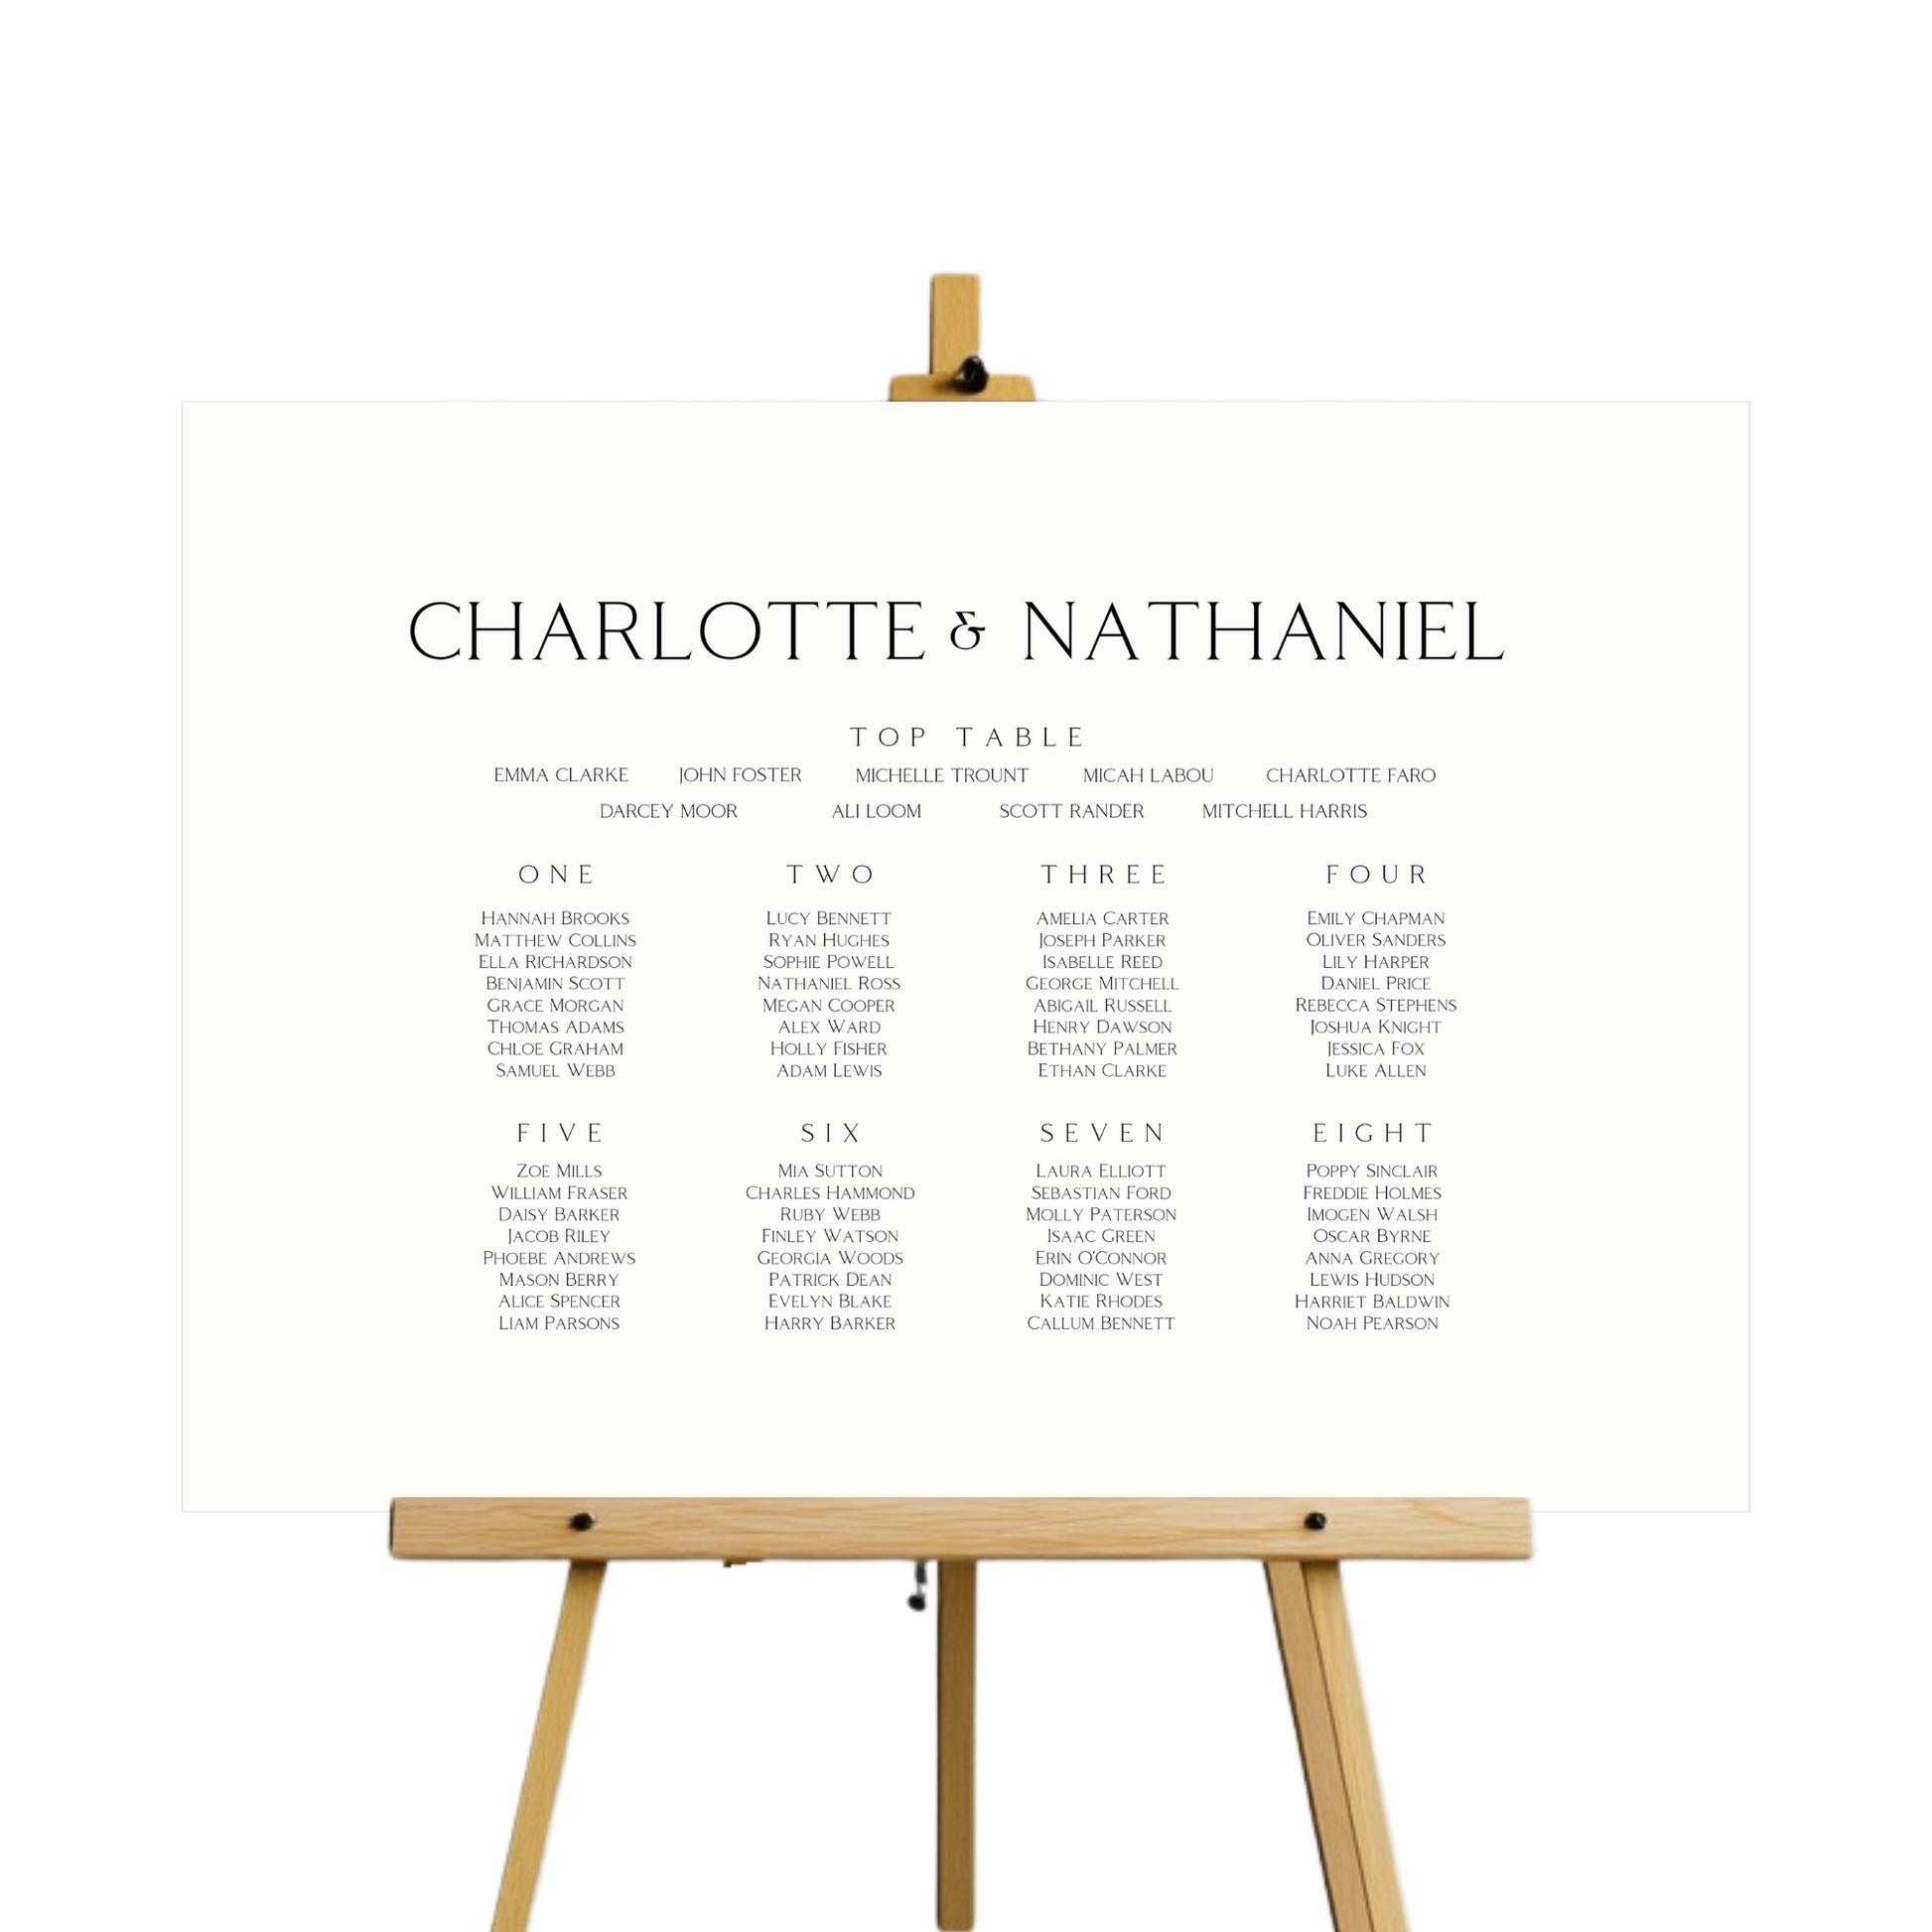 CHARLOTTE & NATHANIEL
TOP TABLE
EMMA CLARKE JOHN FOSTER MICHELLE TROUNT MICAH LABOU CHARLOTTE FARO
DARCEY MOOR ALI LOOM SCOTT RANDER MITCHELL HARRIS
ONE
HANNAH BROOKS
MATTHEW COLLINS
ELLA RICHARDSON
BENJAMIN SCOTT
GRACE MORGAN
THOMAS ADAMS
CHLOE GRAHAM
SAMUEL WEBB
TWO
LUCY BENNETT
RYAN HUGHES
SOPHIE POWELL
NATHANIEL ROSS
MEGAN COOPER
ALEX WARD
HOLLY FISHER
ADAM LEWIS
THREE
AMELIA CARTER
JOSEPH PARKER
ISABELLE REED
GEORGE MITCHELL
ABIGAIL RUSSELL
HENRY DAWSON
BETHANY PALMER
ETHAN CLARKE
FOUR
EMILY CHAPMAN
OLIVER SANDERS
LILY HARPER
DANIEL PRICE
REBECCA STEPHENS
JOSHUA KNIGHT
JESSICA FOX
LUKE ALLEN
FIVE
ZOE MILLS
WILLIAM FRASER
DAISY BARKER
JACOB RILEY
PHOEBE ANDREWS
MASON BERRY
ALICE SPENCER
LIAM PARSONS
SIX
MIA SUTTON
CHARLES HAMMOND
RUBY WEBB
FINLEY WATSON
GEORGIA WOODS
PATRICK DEAN
EVELYN BLAKE
HARRY BARKER
SEVEN
LAURA ELLIOTT
SEBASTIAN FORD
MOLLY PATERSON
ISAAC GREEN
ERIN O'CONNOR
DOMINIC WEST
KATIE RHODES
CALLUM BENNETT
EIGHT
POPPY SINCLAIR
FREDDIE HOLMES
IMOGEN WALSH
OSCAR BYRNE
ANNA GREGORY
LEWIS HUDSON
HARRIET BALDWIN
NOAH PEARSON